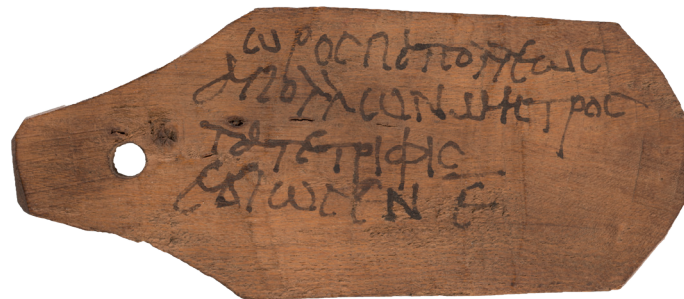 ωρος παπολλεως
απολλων μητρος
τατετριφις
εβιωσεν ε